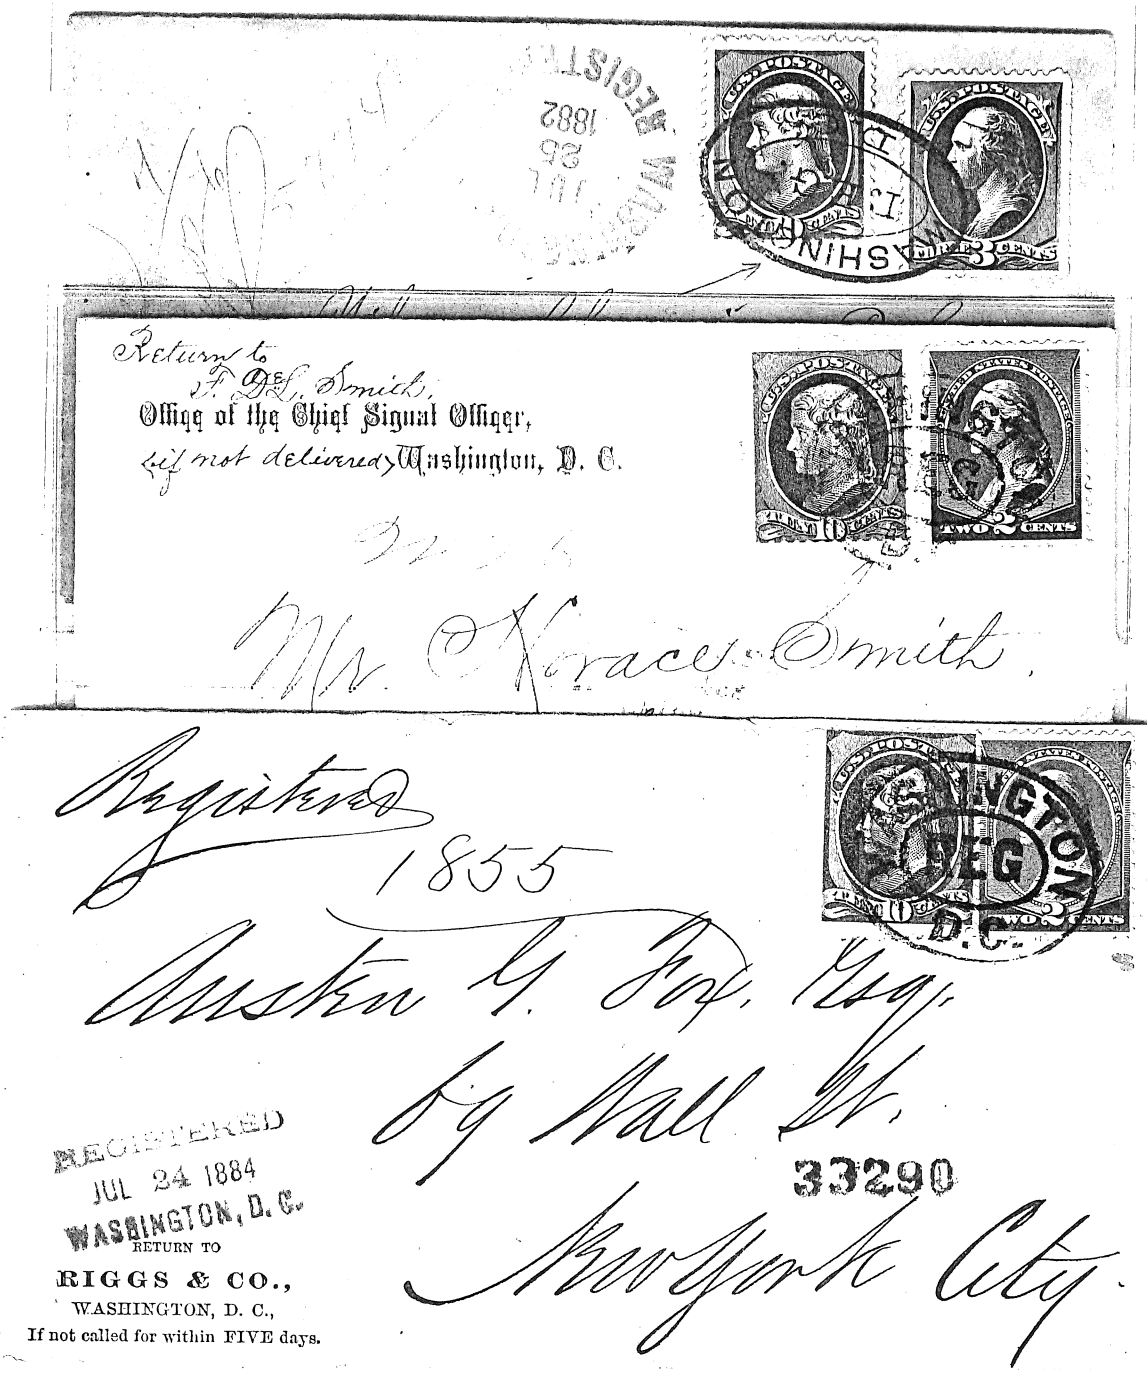 REGISTE
WASHINGTON
JUL
25
1882
U.S. POSTAGE
10
U.S. POSTAGE
THREE 3 CENTS
WASHINGTON
Return to
F. DeL. Smith,
Office of the Chief Signal Officer,
(if not delivered) Washington, D. C.
U.S. POSTAGE
TEN 10 CENTS
UNITED STATES POSTAGE
TWO 2 CENTS
Mr. Horace Smith.
Registered
1855
U.S. POSTAGE
TEN 10 CENTS
TWO 2 CENTS
INGTON
REG
D.C.
Austen G. Fox, Esq.
69 Wall St.
33290
New York City.
REGISTERED
JUL 24 1884
WASHINGTON, D.C.
RETURN TO
RIGGS & CO.,
WASHINGTON, D. C.,
If not called for within FIVE days.